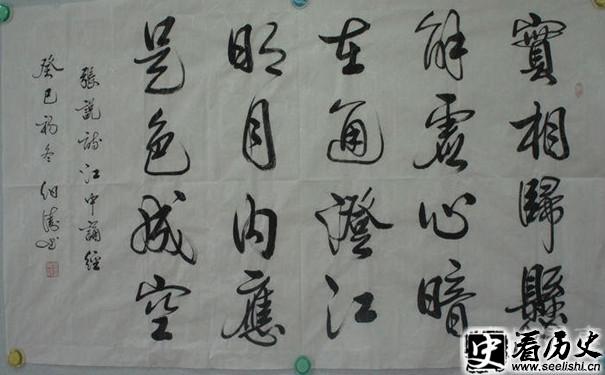 實相歸懸
解虛心暗
在通澄江
明月內應
是色成空
張說詩江中誦經
癸巳初冬
史 看历史
www.seelishi.cn